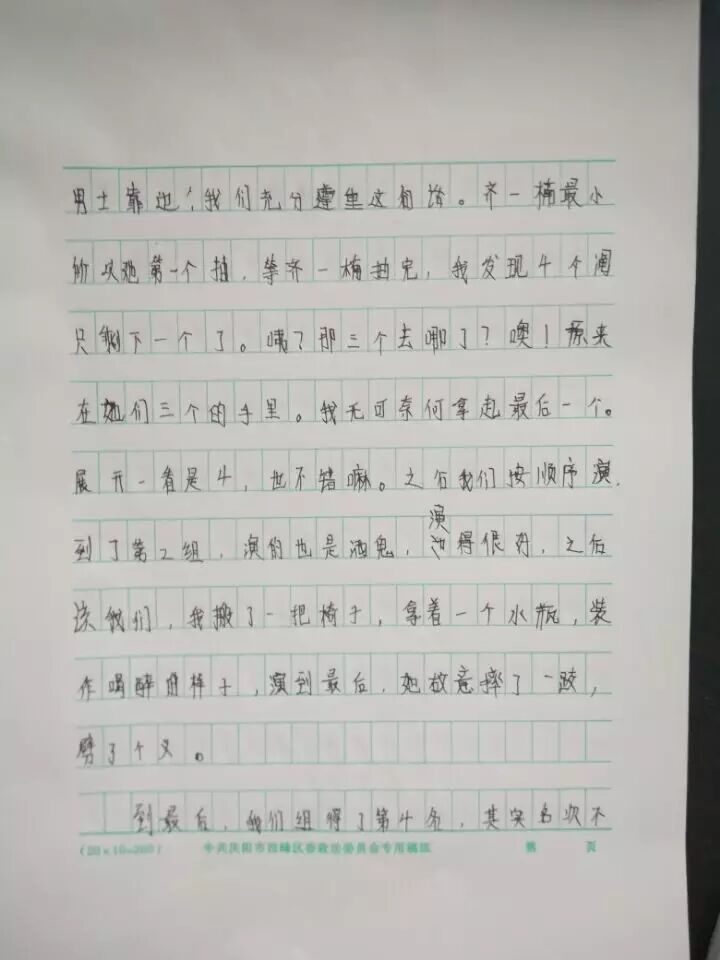 男士靠边,我们充分遵重这句话。齐一楠最小
所以她第一个抽,等齐一楠抽完,我发现4个阄
只剩下一个了。咦?那三个去哪了?噢!原来
在她们三个的手里。我无可奈何拿起最后一个。
展开一看是4,也不错嘛。之后我们按顺序演.
到了第2组,演的也是酒鬼,演得很好,之后
该我们,我搬了一把椅子,拿着一个水瓶,装
作喝醉的样子,演到最后,她故意摔了一跤,
劈了个叉。
到最后,我们组得了第4名,其实名次不
(20×10=200) 中共庆阳市西峰区委政法委员会专用稿纸 第 页